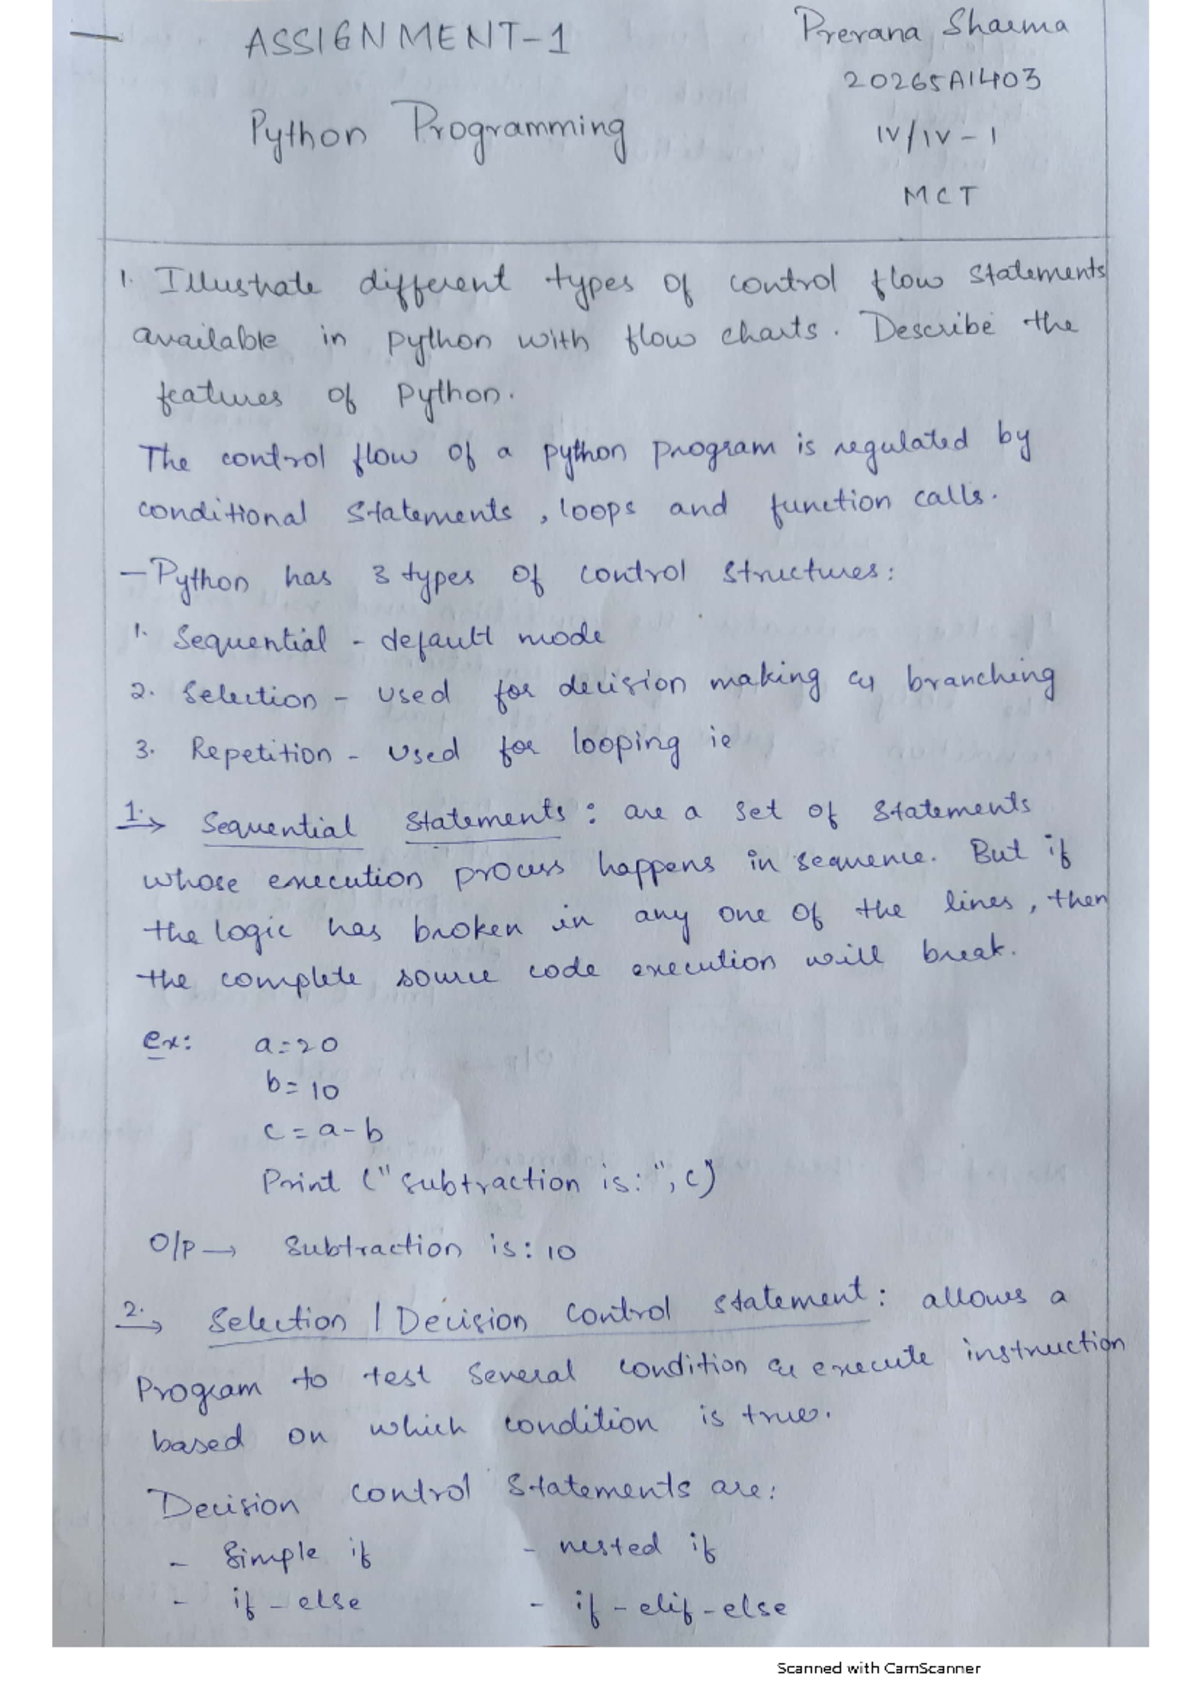 ASSIGNMENT-1
Prerana Sharma
20265A1403
Python Programming
IV/IV - 1
MCT
1. Illustrate different types of control flow statements
available in python with flow charts. Describe the
features of Python.
The control flow of a python program is regulated by
conditional statements, loops and function calls.
- Python has 3 types of control structures:
1. Sequential - default mode
2. Selection - used for decision making & branching
3. Repetition - used for looping ie
1. → Sequential Statements: are a set of statements
whose execution process happens in sequence. But if
the logic has broken in any one of the lines, then
the complete source code execution will break.
ex: a=20
b=10
c=a-b
Print ("subtraction is:", c)
O/p → Subtraction is: 10
2. → Selection / Decision control statement: allows a
Program to test several condition & execute instruction
based on which condition is true.
Decision control statements are:
- Simple if - nested if
- if - else - if - elif - else
Scanned with CamScanner